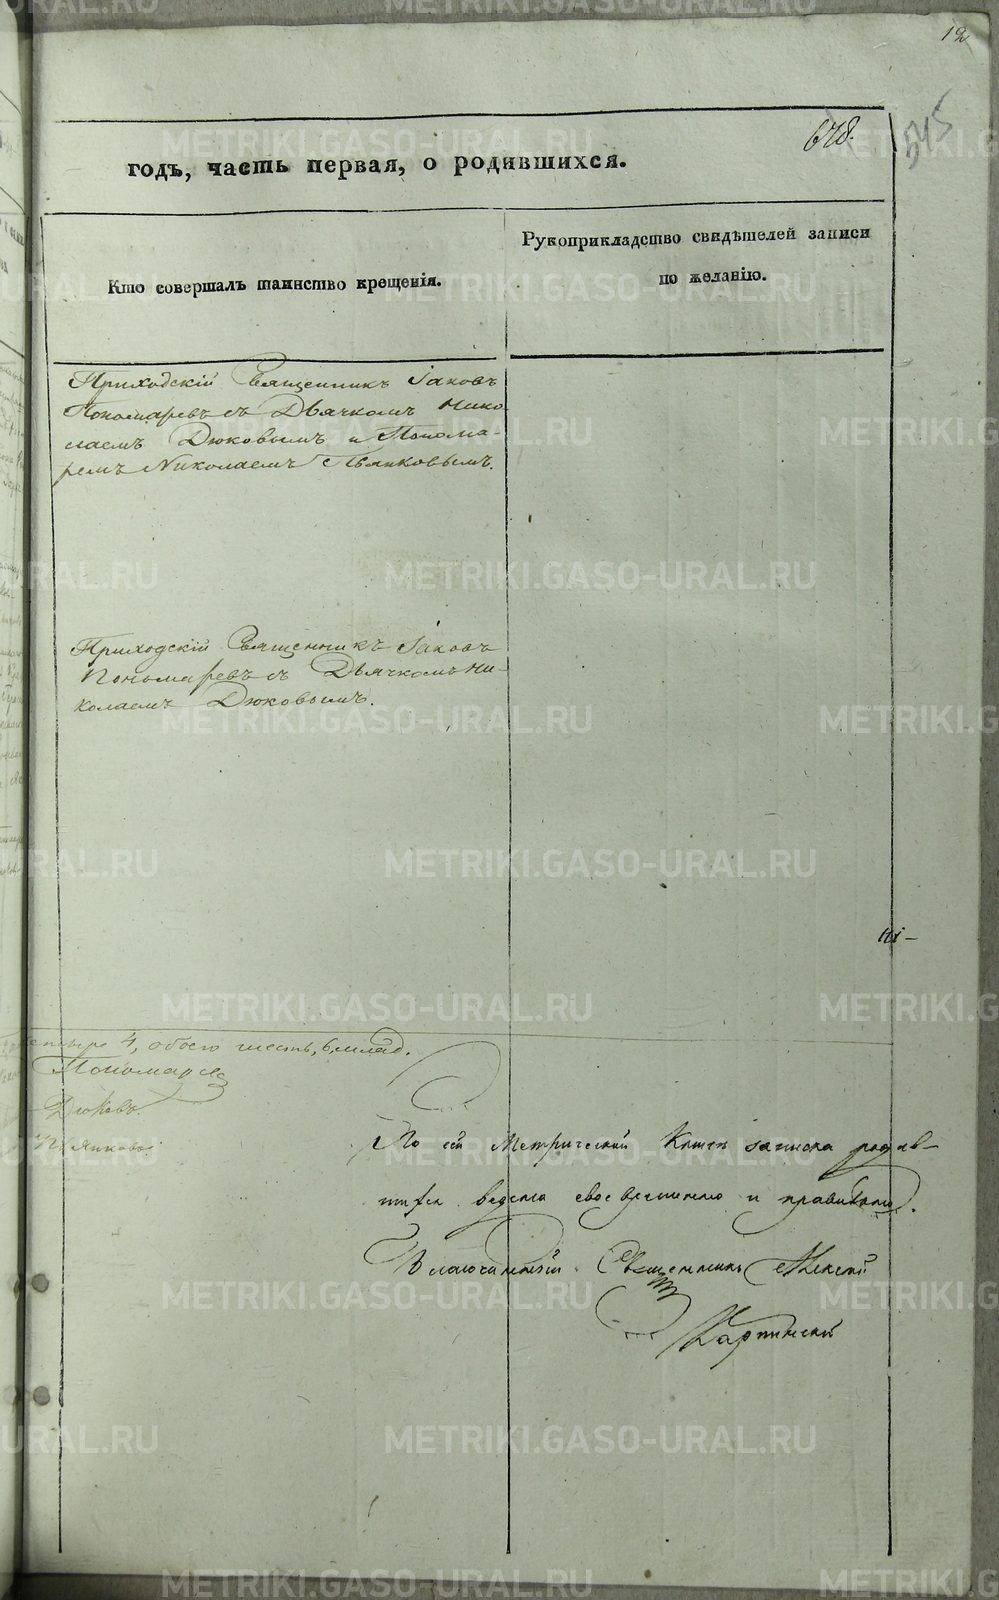 12
678.
545
годъ, часть первая, о родившихся.
Кто совершалъ таинство крещенія.
Рукоприкладство свидѣтелей записи
по желанію.
Приходскій Священникъ Іаковъ
Пономаревъ съ Дьячкомъ Нико
лаемъ Дюковымъ и Понома-
ремъ Николаемъ Пьянковымъ.
Приходскій Священникъ Іаковъ
Пономаревъ съ Дьячкомъ Ни-
колаемъ Дюковымъ.
четыре 4, обоего шесть, 6, млад.
Пономарев
Дюковъ.
Пьянковъ
По сей Метрической Книге записка родив-
шихся ведена своевременно и правильно.
Благочинный Священникъ Алексей
Карпинский
METRIKI.GASO-URAL.RU